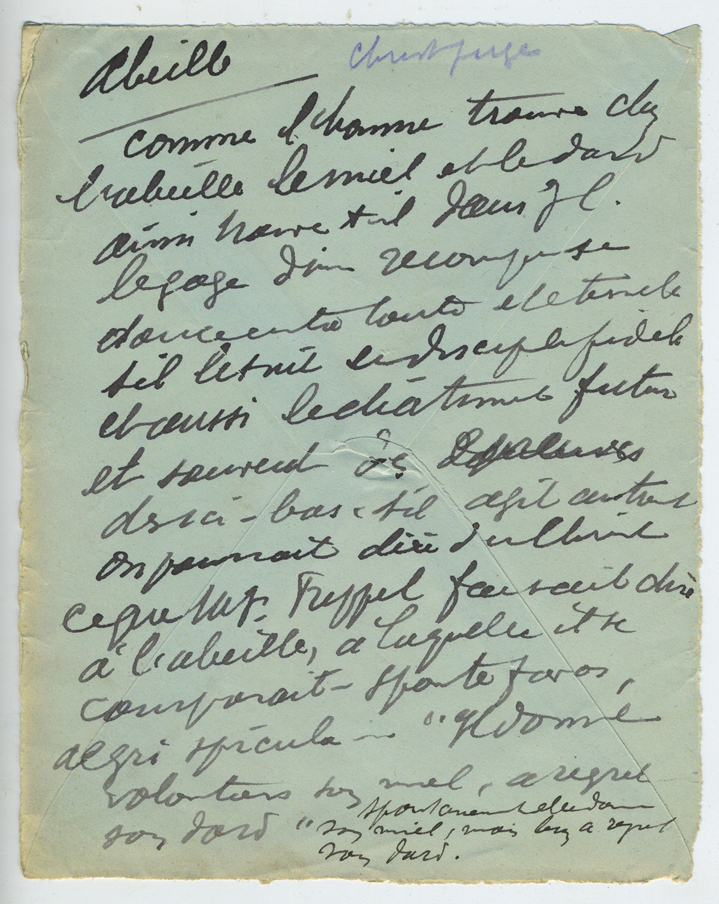 Abeille
Christ juge
comme l'homme trouve chez
l'abeille le miel et le dard
ainsi trouve t-il dans J C.
le gage d'une recompense
douce toute eternelle
s'il le suit en disciple fidele
et aussi le châtiment futur
et souvent dès
d'ici-bas s'il agit autrement
on pourrait dire du Christ
ce que Mgr. Freppel faisait dire
à l'abeille, à laquelle il se
comparait - sponte favos,
aegri spicula - "Il donne
volontiers son miel, a regret
son dard "
spontanement elle donne
son miel, mais bien a regret
son dard.